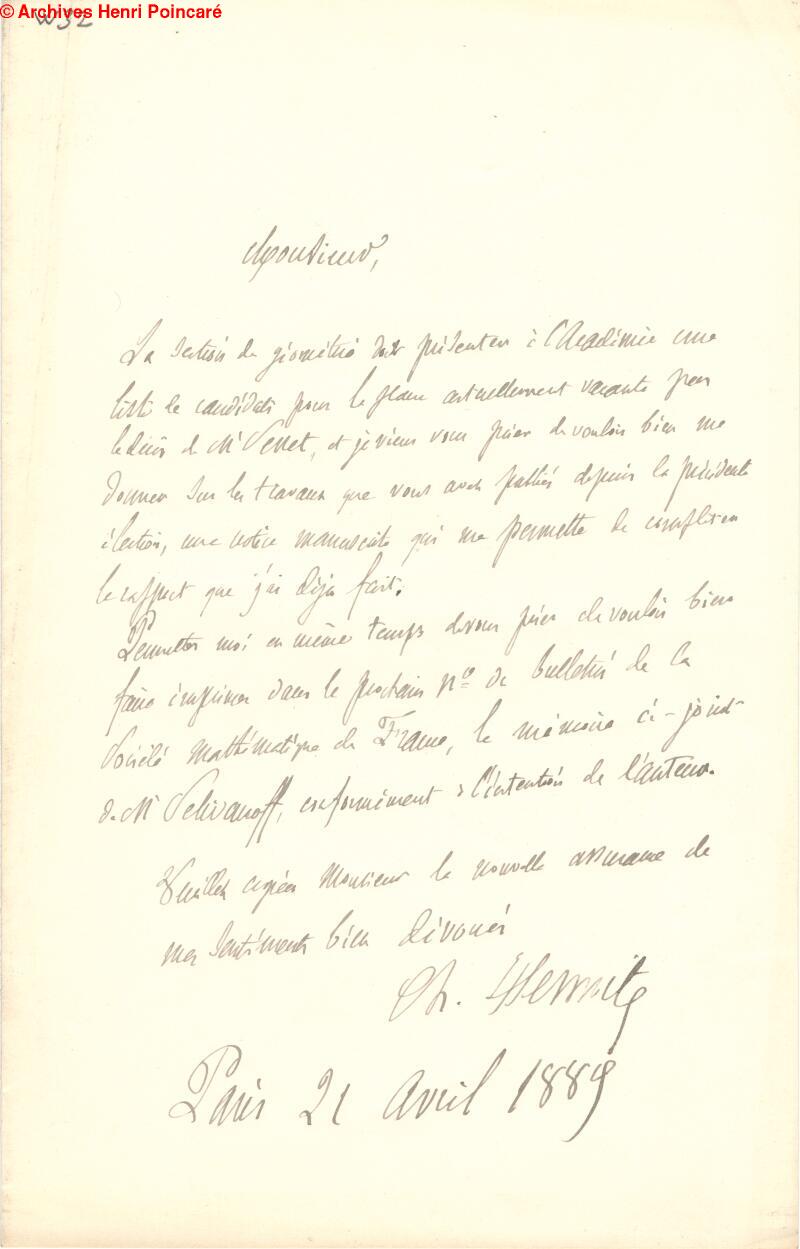 © Archives Henri Poincaré
Monsieur,
La section de géométrie doit présenter à l'Académie une
liste de candidats pour la place actuellement vacante par
le décès de Mr Serret, et je viens vous prier de vouloir bien me
donner sur les travaux que vous avez publiés depuis la précédente
élection, une notice manuscrite qui me permette de compléter
le rapport que j'ai déja fait.
Permettez moi en même temps de vous prier de vouloir bien
faire imprimer dans le prochain no de bulletin de la
Société mathématique de France, le mémoire ci-joint
de Mr Selivanoff, conformément à l'intention de l'auteur.
Veuillez agréer Monsieur la nouvelle assurance de
mes sentiments bien dévoués
Ch. Hermite
Paris 21 Avril 1889